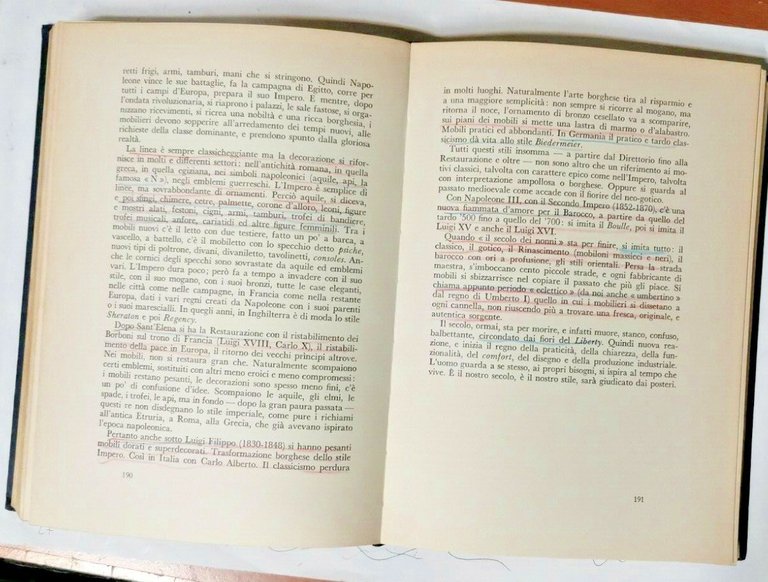 retti frigi, armi, tamburi, mani che si stringono. Quindi Napo-
leone vince le sue battaglie, fa la campagna di Egitto, corre per
tutti i campi d'Europa, prepara il suo Impero. E mentre, dopo
l'ondata rivoluzionaria, si riaprono i palazzi, le sale fastose, si orga-
nizzano ricevimenti, si ricrea una nobiltà e una ricca borghesia, i
mobilieri devono sopperire all'arredamento dei tempi nuovi, alle
richieste della classe dominante, e prendono spunto dalla gloriosa
realtà.
La linea è sempre classicheggiante ma la decorazione si rifor-
nisce in molti e differenti settori: nell'antichità romana, in quella
greca, in quella egiziana, nei simboli napoleonici (aquile, api, la
famosa « N »), negli emblemi guerreschi. L'Impero è semplice di
linee, ma sovrabbondante di ornamenti. Perciò aquile, si diceva,
e poi sfingi, chimere, cetre, palmette, corone d'alloro, leoni, figure
e mostri alati, festoni, cigni, armi, tamburi, trofei di bandiere,
trofei musicali, anfore, cariatidi ed altre figure femminili. Tra i
mobili nuovi c'è il letto con due testiere, fatto un po' a barca, a
vascello, a battello, c'è il mobiletto con lo specchio detto psiche,
nuovi tipi di poltrone, divani, divaniletto, tavolinetti, consoles. An-
che le cornici degli specchi sono sovrastate da aquile ed emblemi
vari. L'Impero dura poco; però fa a tempo a invadere con il suo
stile, con il suo mogano, con i suoi bronzi, tutte le case eleganti,
nelle città come nelle campagne, in Francia come nella restante
Europa, dati i vari regni creati da Napoleone con i suoi parenti
e i suoi marescialli. In quegli anni, in Inghilterra è di moda lo stile
Sheraton e poi Regency.
Dopo Sant'Elena si ha la Restaurazione con il ristabilimento dei
Borboni sul trono di Francia (Luigi XVIII, Carlo X), il ristabili-
mento della pace in Europa, il ritorno dei vecchi principi altrove.
Nei mobili, non si restaura gran che. Naturalmente scompaiono
certi emblemi, sostituiti con altri meno eroici e meno compromessi:
i mobili restano pesanti, le decorazioni sono spesso meno fini, c'è
un po' di confusione d'idee. Scompaiono le aquile, gli elmi, le
spade, i trofei, le api, ma in fondo — dopo la gran paura passata —
questi re non disdegnano lo stile imperiale, come pure i richiami
all'antica Etruria, a Roma, alla Grecia, che già avevano ispirato
l'epoca napoleonica.
Pertanto anche sotto Luigi Filippo (1830-1848) si hanno pesanti
mobili dorati e superdecorati. Trasformazione borghese dello stile
Impero. Così in Italia con Carlo Alberto. Il classicismo perdura
190
in molti luoghi. Naturalmente l'arte borghese tira al risparmio e
a una maggiore semplicità: non sempre si ricorre al mogano, ma
ritorna il noce, l'ornamento di bronzo cesellato va a scomparire,
sui piani dei mobili si mette una lastra di marmo o d'alabastro.
Mobili pratici ed abbondanti. In Germania il pratico e tardo clas-
sicismo dà vita allo stile Biedermeier.
Tutti questi stili insomma — a partire dal Direttorio fino alla
Restaurazione e oltre — non sono altro che un riferimento ai mo-
tivi classici, talvolta con carattere epico come nell'Impero, talvolta
con interpretazione ampollosa o borghese. Oppure si guarda al
passato medioevale come accade con il fiorire del neo-gotico.
Con Napoleone III, con il Secondo Impero (1852-1870), c'è una
nuova fiammata d'amore per il Barocco, a partire da quello del
tardo '500 fino a quello del '700: si imita il Boulle, poi si imita il
Luigi XV e anche il Luigi XVI.
Quando « il secolo dei nonni » sta per finire, si imita tutto: il
classico, il gotico, il Rinascimento (mobiloni massicci e neri), il
barocco con ori a profusione, gli stili orientali. Persa la strada
maestra, s'imboccano cento piccole strade, e ogni fabbricante di
mobili si sbizzarrisce nel copiare il passato che più gli piace. Si
chiama appunto periodo « eclettico » (da noi anche « umbertino »
dal regno di Umberto I) quello in cui i mobilieri si dissetano a
ogni cannella, non riuscendo più a trovare una fresca, originale, e
autentica sorgente.
Il secolo, ormai, sta per morire, e infatti muore, stanco, confuso,
balbettante, circondato dai fiori del Liberty. Quindi nuova rea-
zione, e inizia il regno della praticità, della chiarezza, della fun-
zionalità, del comfort, del disegno e della produzione industriale.
L'uomo guarda a se stesso, ai propri bisogni, si ispira al tempo che
vive. È il nostro secolo, è il nostro stile, sarà giudicato dai posteri.
191